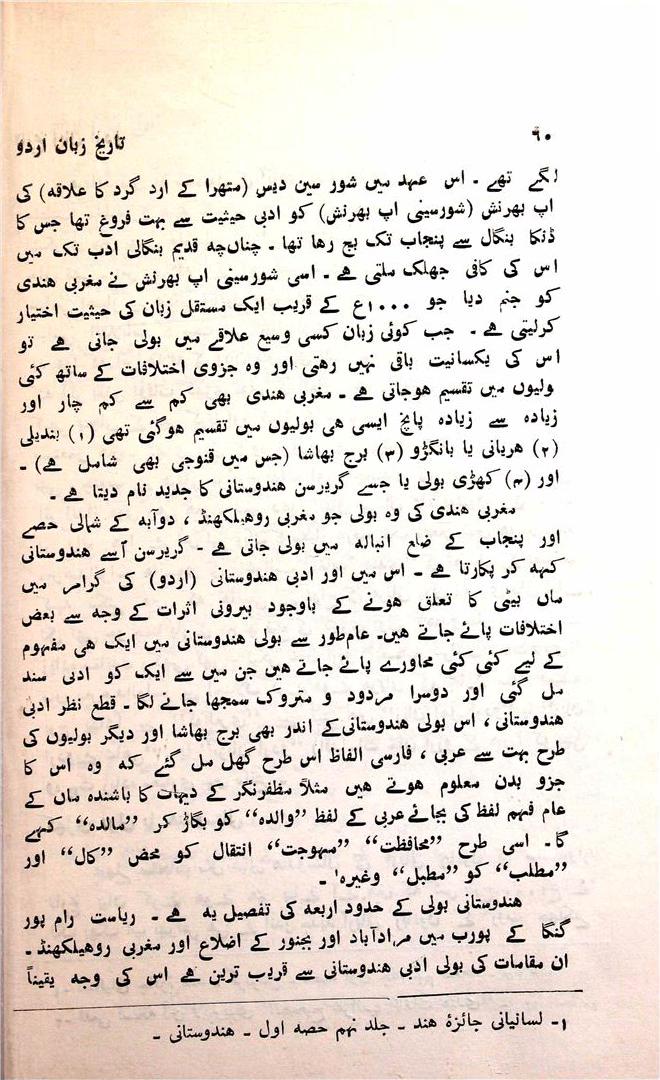 ۶۰
تاریخ زبان اردو
لگے تھے ۔ اس عہد میں شور سین دیس (متھرا کے ارد گرد کا علاقہ) کی
اپ بھرنش (شورسینی اپ بھرنش) کو ادبی حیثیت سے بہت فروغ تھا جس کا
ڈنکا بنگال سے پنجاب تک بج رہا تھا ۔ چناںچہ قدیم بنگالی ادب تک میں
اس کی کافی جھلک ملتی ہے ۔ اسی شورسینی اپ بھرنش نے مغربی ہندی
کو جنم دیا جو ۱۰۰۰ع کے قریب ایک مستقل زبان کی حیثیت اختیار
کرلیتی ہے ۔ جب کوئی زبان کسی وسیع علاقے میں بولی جاتی ہے تو
اس کی یکسانیت باقی نہیں رہتی اور وہ جزوی اختلافات کے ساتھ کئی
ولیوں میں تقسیم ہوجاتی ہے ۔ مغربی ہندی بھی کم سے کم چار اور
زیادہ سے زیادہ پانچ ایسی ہی بولیوں میں تقسیم ہوگئی تھی (۱) بندیلی
(۲) ہریانی یا بانگڑو (۳) برج بھاشا (جس میں قنوجی بھی شامل ہے) ۔
اور (۴) کھڑی بولی یا جسے گریرسن ہندوستانی کا جدید نام دیتا ہے ۔
مغربی ہندی کی وہ بولی جو مغربی روھیلکھنڈ ، دوآبہ کے شمالی حصے
اور پنجاب کے ضلع انبالہ میں بولی جاتی ہے ۔ گریرسن اُسے ہندوستانی
کہہ کر پکارتا ہے ۔ اس میں اور ادبی ہندوستانی (اردو) کی گرامر میں
ماں بیٹی کا تعلق ہونے کے باوجود بیرونی اثرات کے وجہ سے بعض
اختلافات پائے جاتے ہیں۔ عام‌طور سے بولی ہندوستانی میں ایک ہی مفہوم
کے لیے کئی کئی محاورے پائے جاتے ہیں جن میں سے ایک کو ادبی سند
مل گئی اور دوسرا مردود و متروک سمجھا جانے لگا ۔ قطع نظر ادبی
ہندوستانی ، اس بولی ہندوستانی‌کے اندر بھی برج بھاشا اور دیگر بولیوں کی
طرح بہت سے عربی ، فارسی الفاظ اس طرح گھل مل گئے کہ وہ اس کا
جزو بدن معلوم ہوتے ہیں مثلاً مظفرنگر کے دیہات کا باشندہ ماں کے
عام فہم لفظ کی بجائے عربی کے لفظ ’’والدہ‘‘ کو بگاڑ کر ’’مالدہ‘‘ کہے
گا۔ اسی طرح ’’محافظت‘‘ ’’مہوجت‘‘ انتقال کو محض ’’کال‘‘ اور
’’مطلب‘‘ کو ’’مطبل‘‘ وغیرہ۱ ۔
ہندوستانی بولی کے حدود اربعہ کی تفصیل یہ ہے ۔ ریاست رام پور
گنگا کے پورب میں مرادآباد اور بجنور کے اضلاع اور مغربی روھیلکھنڈ ۔
ان مقامات کی بولی ادبی ہندوستانی سے قریب ترین ہے اس کی وجہ یقیناً
۱۔ لسانیاتی جائزۂ ہند ۔ جلد نہم حصہ اول ۔ ہندوستانی ۔